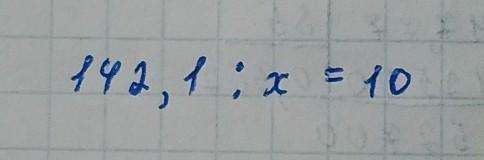 142,1 : x = 10